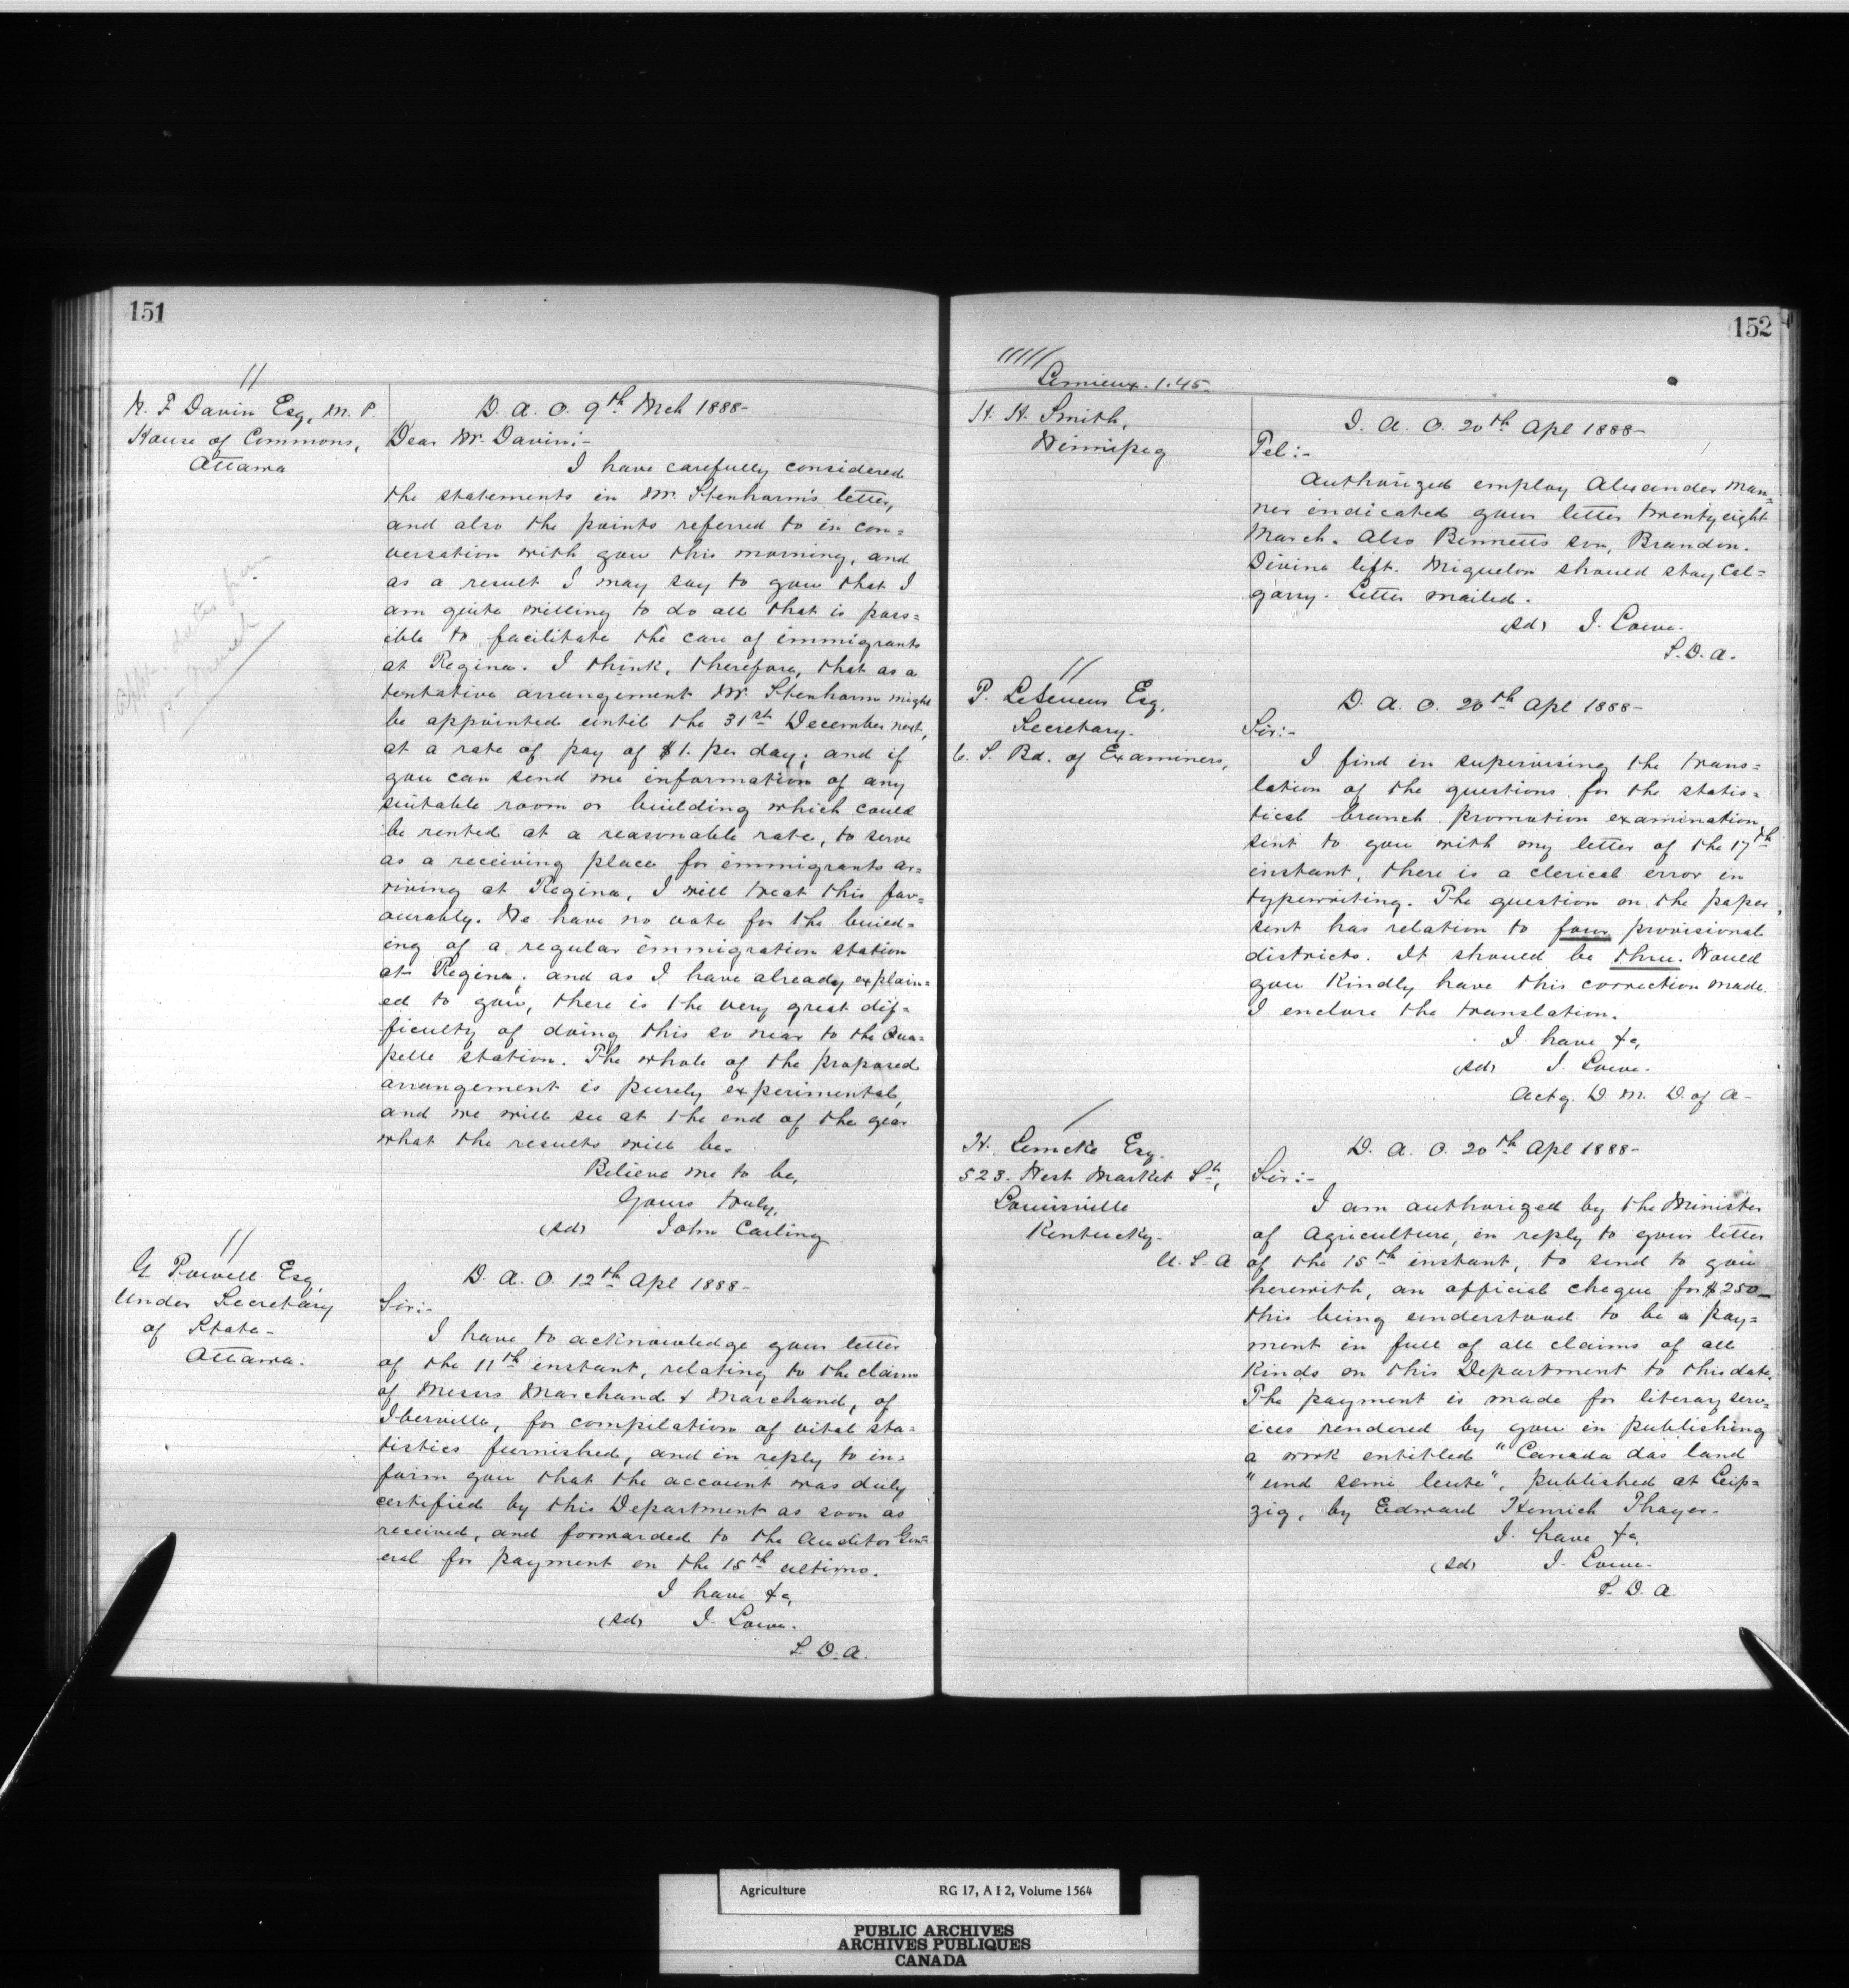 151
N. F. Davin Esq, M. P.
House of Commons,
Ottawa
D. A. O. 9th Mch 1888-
Dear Mr. Davin:-
I have carefully considered
the statements in Mr. Stenhorm's letter,
and also the points referred to in con=
versation with you this morning, and
as a result I may say to you that I
am quite willing to do all that is poss=
ible to facilitate the care of immigrants
at Regina. I think, therefore, that as a
tentative arrangement Mr. Stenhorm might
be appointed until the 31st December next,
at a rate of pay of $1. per day; and if
you can send me information of any
suitable room or building which could
be rented at a reasonable rate, to serve
as a receiving place for immigrants ar=
riving at Regina, I will treat this fav=
ourably. We have no vote for the build=
ing of a regular immigration station
at Regina; and as I have already explain=
ed to you, there is the very great dif=
ficulty of doing this so near to the Qua=
pelle station. The whole of the proposed
arrangement is purely experimental,
and we will see at the end of the year
what the results will be.
Believe me to be,
Yours truly,
(sd) John Carling
G Powell Esq,
Under Secretary
of State-
Ottawa.
D. A. O. 12th Apl 1888-
Sir:-
I have to acknowledge your letter
of the 11th instant, relating to the claim
of Messrs Marchand & Marchand, of
Iberville, for compilation of vital sta=
tistics furnished, and in reply to in=
form you that the account was duly
certified by this Department as soon as
received, and forwarded to the Auditor Gen=
eral for payment on the 15th ultimo.
I have &c,
(sd) J. Lowe.
S. D. A.
152
Lemieux. 1.45.
H. H. Smith,
Winnipeg
D. A. O. 20th Apl 1888-
Tel:-
Authorized employ Alexander man=
ner indicated your letter twenty eight
March. Also Bennetts son, Brandon.
Divina left. Miquelon should stay Cal=
garry. Letter mailed.
(sd) J. Lowe.
S. D. A.
P. LeSueur Esq.
Secretary.
C. S. Bd. of Examiners,
D. A. O. 20th Apl 1888-
Sir:-
I find in supervising the trans=
lation of the questions for the statis=
tical branch promotion examination,
sent to you with my letter of the 17th
instant, there is a clerical error in
typewriting. The question on the paper,
sent has relation to four provisional
districts. It should be three. Would
you kindly have this correction made.
I enclose the translation.
I have &c,
(sd) J. Lowe.
Actg. D. M. D. of A-
H. Lemcke Esq.
523. West Market St,
Louisville
Kentucky-
U. S. A.
D. A. O. 20th Apl 1888-
Sir:-
I am authorized by the Minister
of Agriculture, in reply to your letter
of the 15th instant, to send to you
herewith, an official cheque for $250-
this being understood to be a pay=
ment in full of all claims of all
kinds on this Department to this date.
The payment is made for literary serv=
ices rendered by you in publishing
a work entitled "Canada das land
"und seine leute", published at Leip=
zig, by Edward Henrich Thayer-
I have &c,
(sd) J. Lowe.
S. D. A.
Agriculture RG 17, A I 2, Volume 1564
PUBLIC ARCHIVES
ARCHIVES PUBLIQUES
CANADA